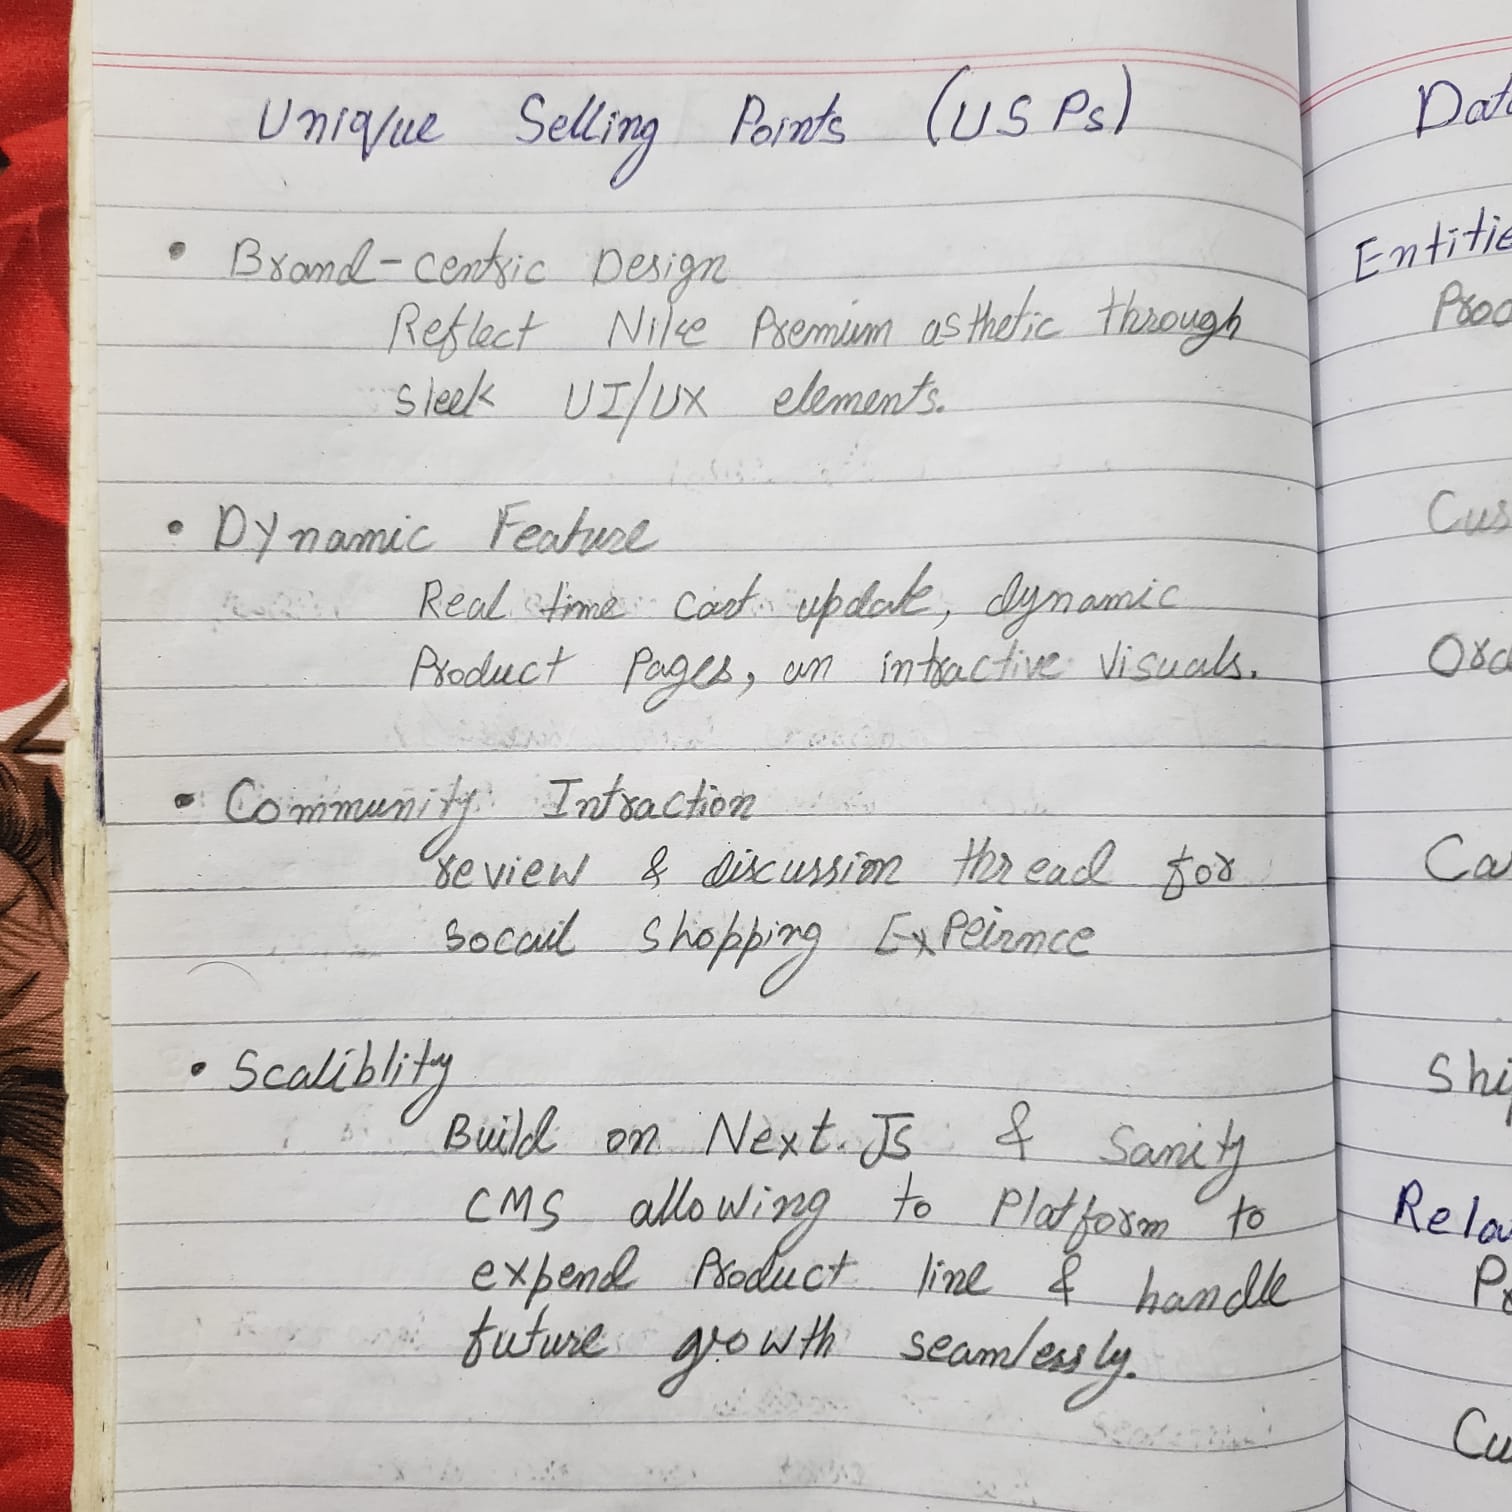 Unique Selling Points (USPs)
• Brand-centric Design
Reflect Nike Premium asthetic through
sleek UI/UX elements.
• Dynamic Feature
Real time cart update, dynamic
Product Pages, an intractive visuals.
• Community Intraction
review & discussion thread for
socail shopping ExPeirnce
• Scaliblity
Build on Next.Js & Sanity
CMS allowing to Platform to
expend Product line & handle
future growth seamlessly.
Dat
Entitie
Prod
Cus
Ord
Ca
Shi
Rela
Pr
Cu